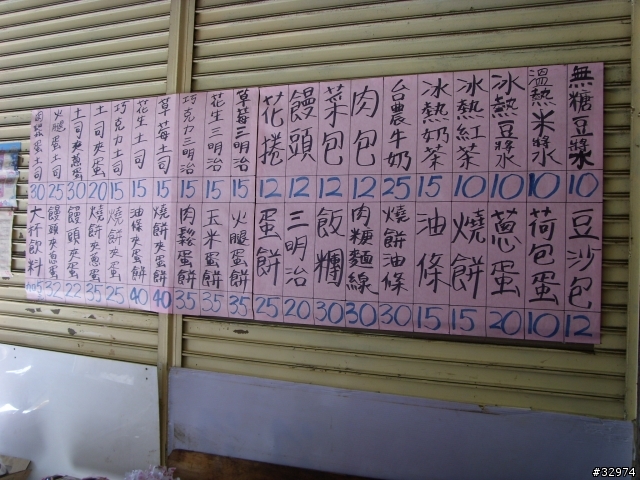 無糖豆漿 10
溫熱米漿 10
冰熱豆漿 10
冰熱紅茶 10
冰熱奶茶 15
台農牛奶 25
肉包 12
菜包 12
饅頭 12
花捲 12
草莓三明治 15
花生三明治 15
巧克力三明治 15
草莓土司 15
花生土司 15
巧克力土司 15
土司夾蛋 20
土司夾蔥蛋 30
火腿蛋土司 25
蛋土司 30
豆沙包 12
荷包蛋 10
蔥蛋 20
燒餅 15
油條 15
燒餅油條 30
肉粳麵線 30
飯糰 30
三明治 20
蛋餅 25
火腿蛋餅 35
玉米蛋餅 35
肉鬆蛋餅 35
燒餅夾蛋餅 40
油條夾蛋餅 40
燒餅夾蛋 25
燒餅夾蔥蛋 35
饅頭夾蛋 22
饅頭夾蔥蛋 32
大杯飲料
#32974